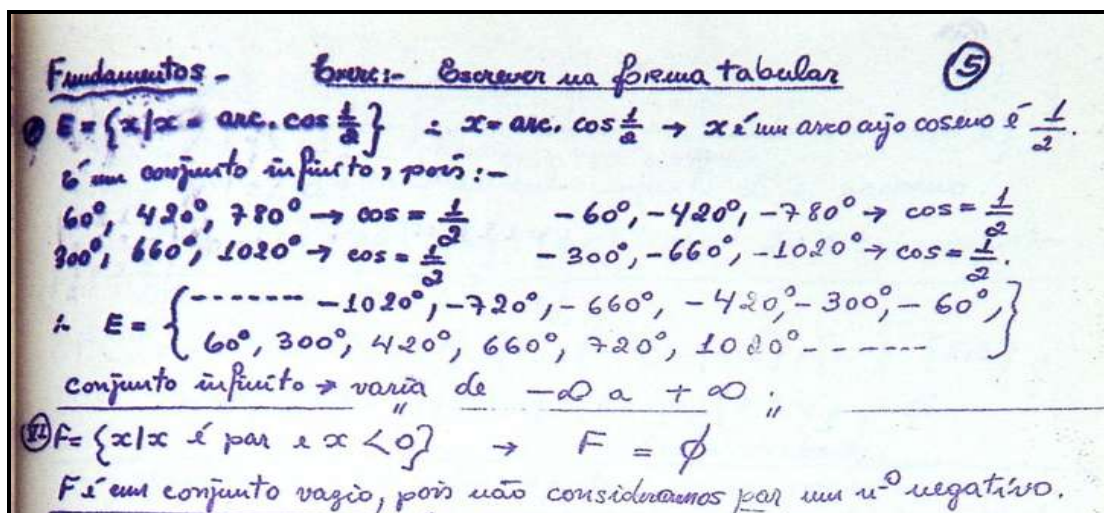 Fundamentos - Exerc:- Escrever na forma tabular 5
E = {x/x = arc. cos 1/2} ∴ x = arc. cos 1/2 → x é um arco cujo coseno é 1/2.
É um conjunto infinito, pois:-
60°, 420°, 780° → cos = 1/2 -60°, -420°, -780° → cos = 1/2
300°, 660°, 1020° → cos = 1/2 -300°, -660°, -1020° → cos = 1/2.
∴ E = {------- -1020°, -720°, -660°, -420°, -300°, -60°,
60°, 300°, 420°, 660°, 720°, 1020° -------}
conjunto infinito → varia de -∞ a +∞ ;
VI F = {x/x é par e x < 0} → F = ∅
F é um conjunto vazio, pois não consideramos par um nº negativo.